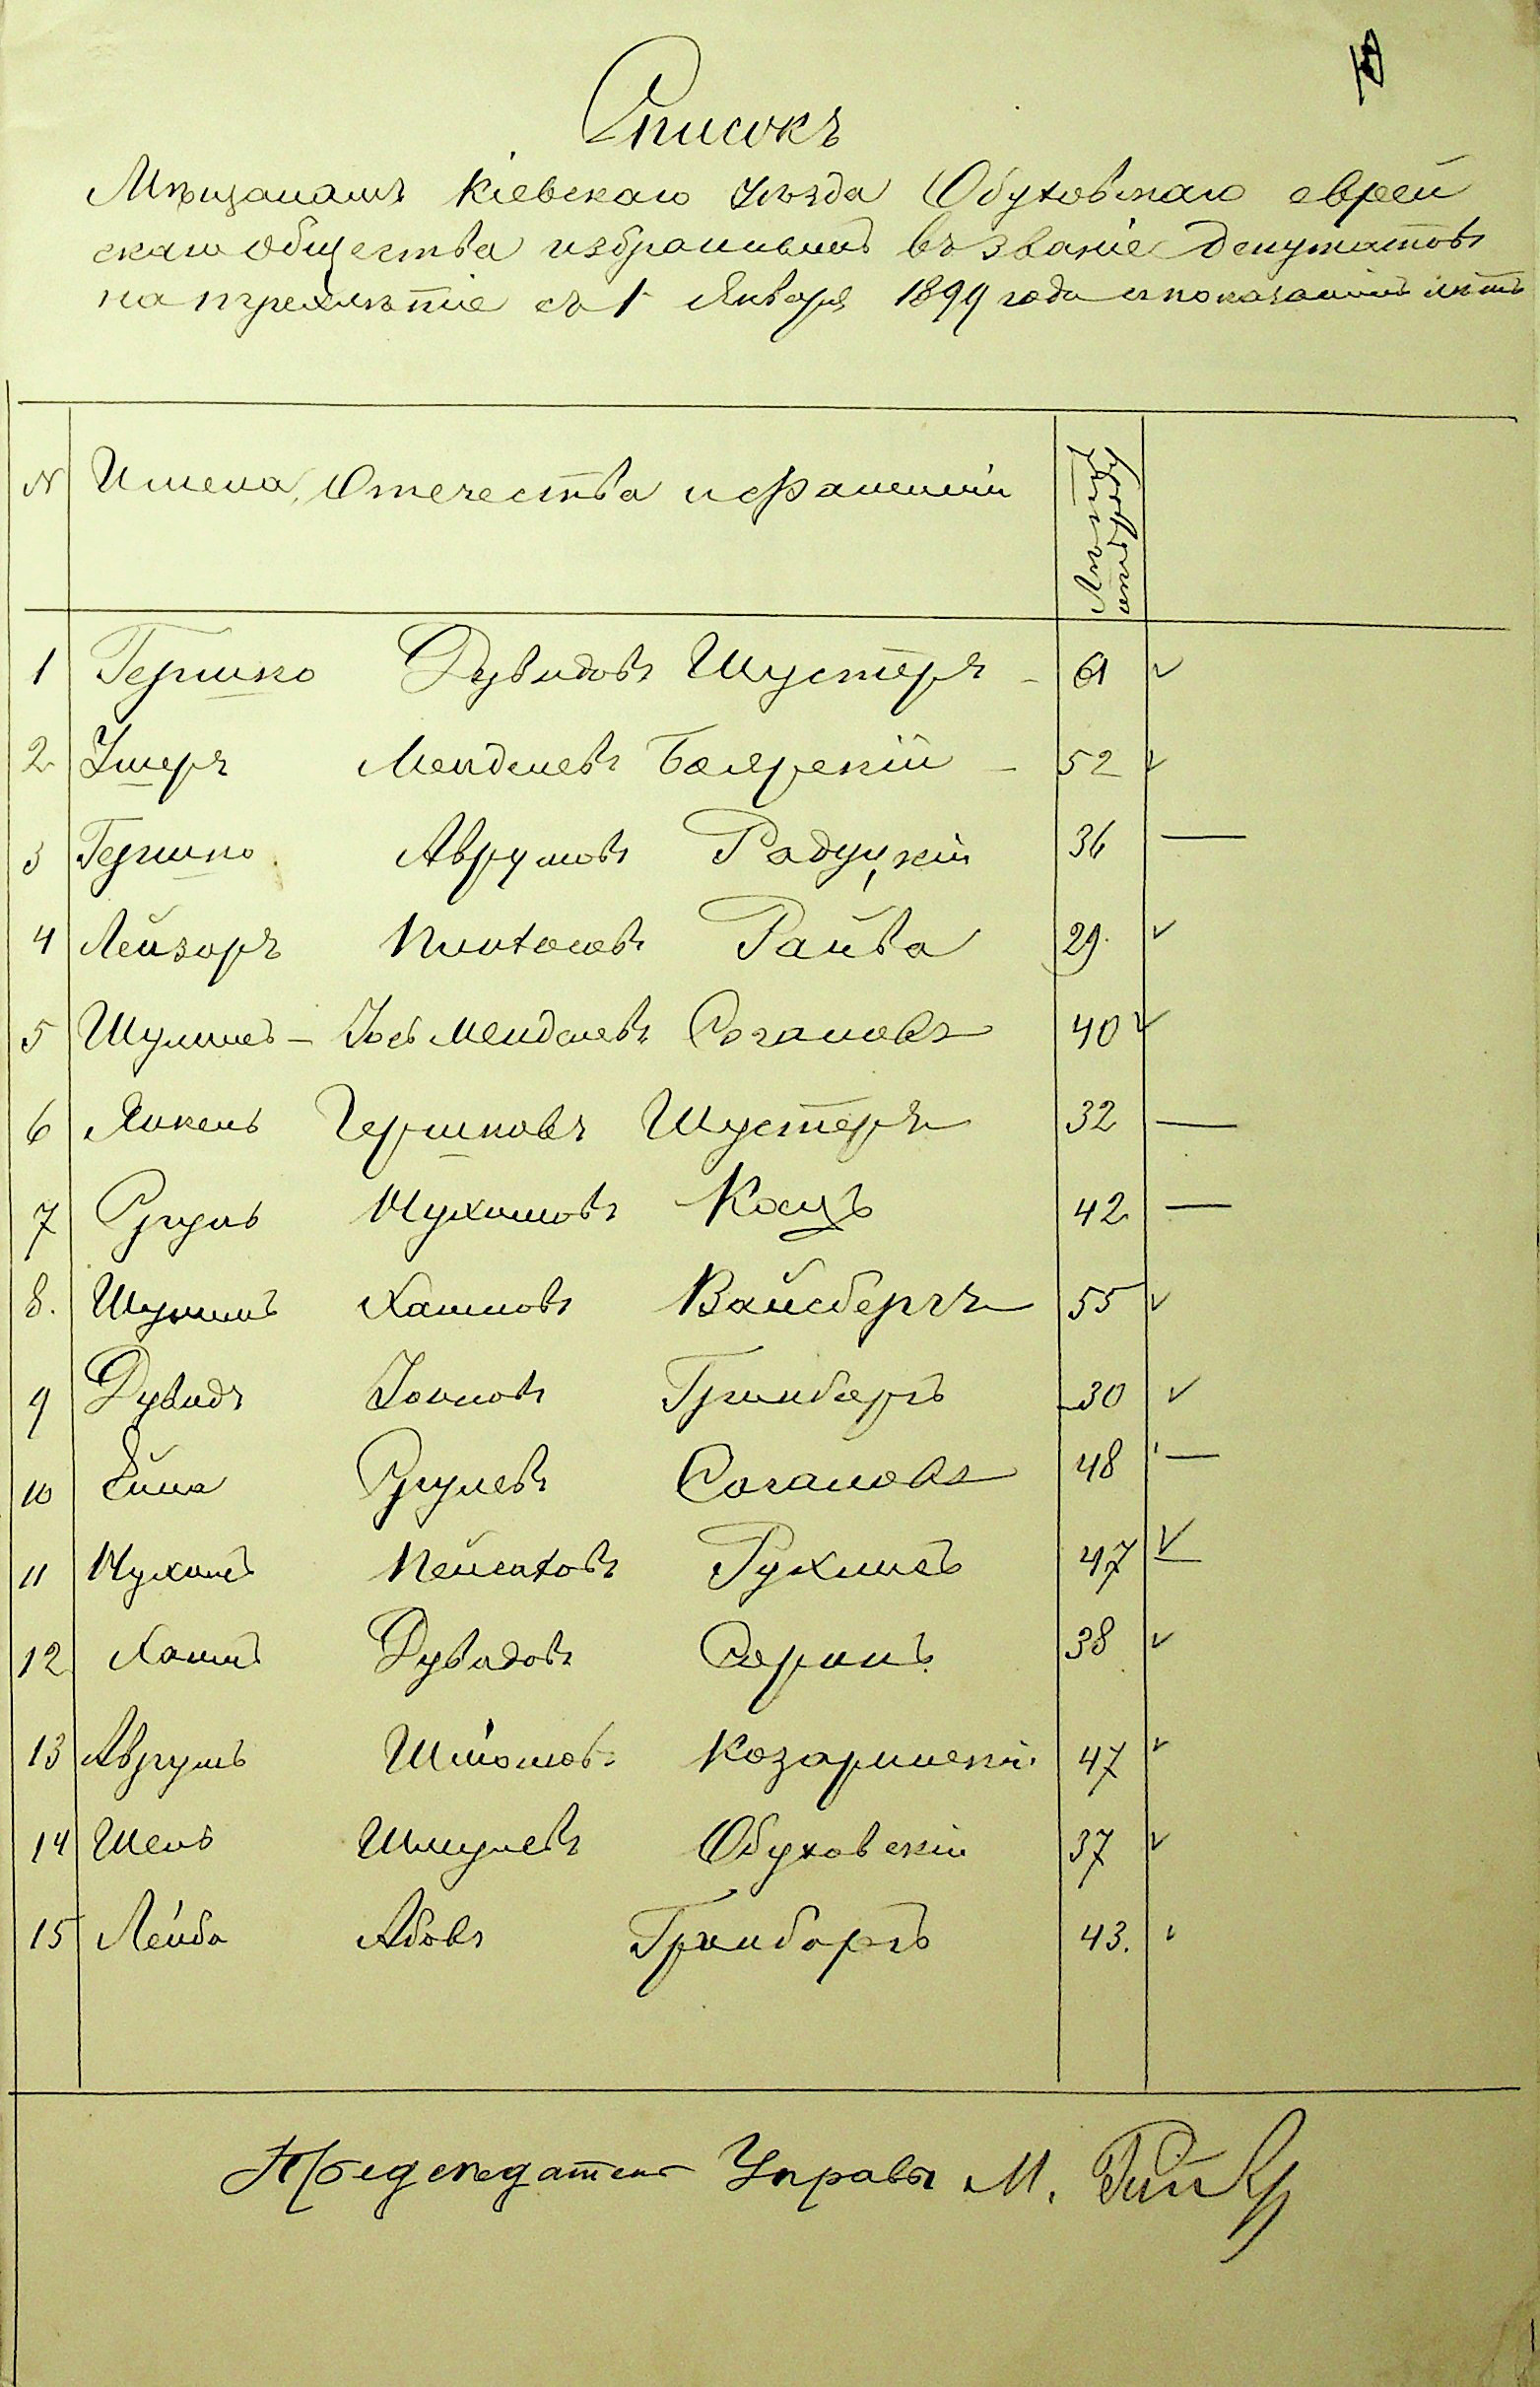 Списокъ
Мѣщанамъ Кіевскаго Уѣзда Обуховскаго еврей
скаго общества избраннымъ въ званіе депутатовъ
на трехлѣтіе съ 1 Января 1899 года съ показаніемъ лѣтъ
N Имена, Отечества и фамиліи Лѣта отъ роду
1 Гершко Дувидовъ Шустеръ - 61 v
2 Ушеръ Менделевъ Боярскій - 52 v
3 Гершко Аврумовъ Радуцкій 36 —
4 Лейзоръ Пинхосовъ Райва 29. v
5 Шулимъ - Іось Менделевъ Согаловъ 40 v
6 Янкель Гершковъ Шустеръ 32 —
7 Сруль Нухимовъ Кацъ 42 —
8. Шулимъ Хаимовъ Вайсбергъ 55 v
9 Дувидъ Гринбергъ 30 v
10 Срулевъ Согаловъ 48 —
11 Нухимъ Пейсаховъ Рухлисъ 47 v
12 Хаимъ Дувидовъ Соринъ 38 v
13 Аврумъ Козаринскій 47 v
14 Шмулевъ Обуховскій 37 v
15 Лейба Абовъ Гринборгъ 43. v
Предсѣдатель Управы М.